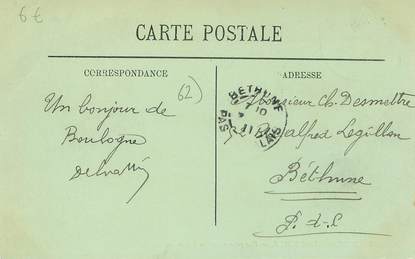 6 €
CARTE POSTALE
CORRESPONDANCE
ADRESSE
62)
Un bonjour de
Boulogne
BETHUNE
PAS
CALAIS
Monsieur Ch. Desmettre
alfred Legillon
Béthune
P.-d.-C